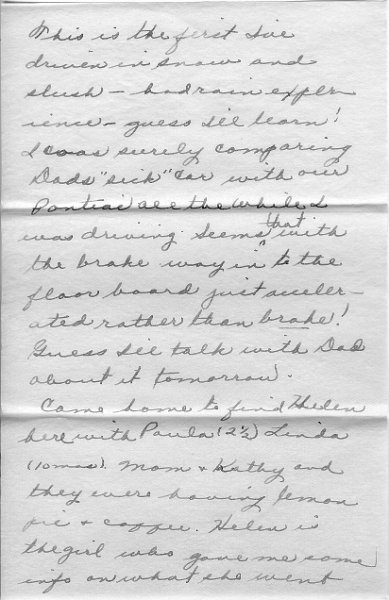 This is the first I've
driven in snow and
slush - had rain exper-
ience - guess I'll learn!
I was surely comparing
Dads "sick" car with our
Pontiac all the while I
was driving. Seems that with
the brake way in to the
floor board just acceler-
ated rather than brake!
Guess I'll talk with Dad
about it tomorrow.
Came home to find Helen
here with Paula (2½) Linda
(10 mos). Mom + Kathy and
they were having lemon
pie + coffee. Helen is
the girl who gave me some
info on what she went